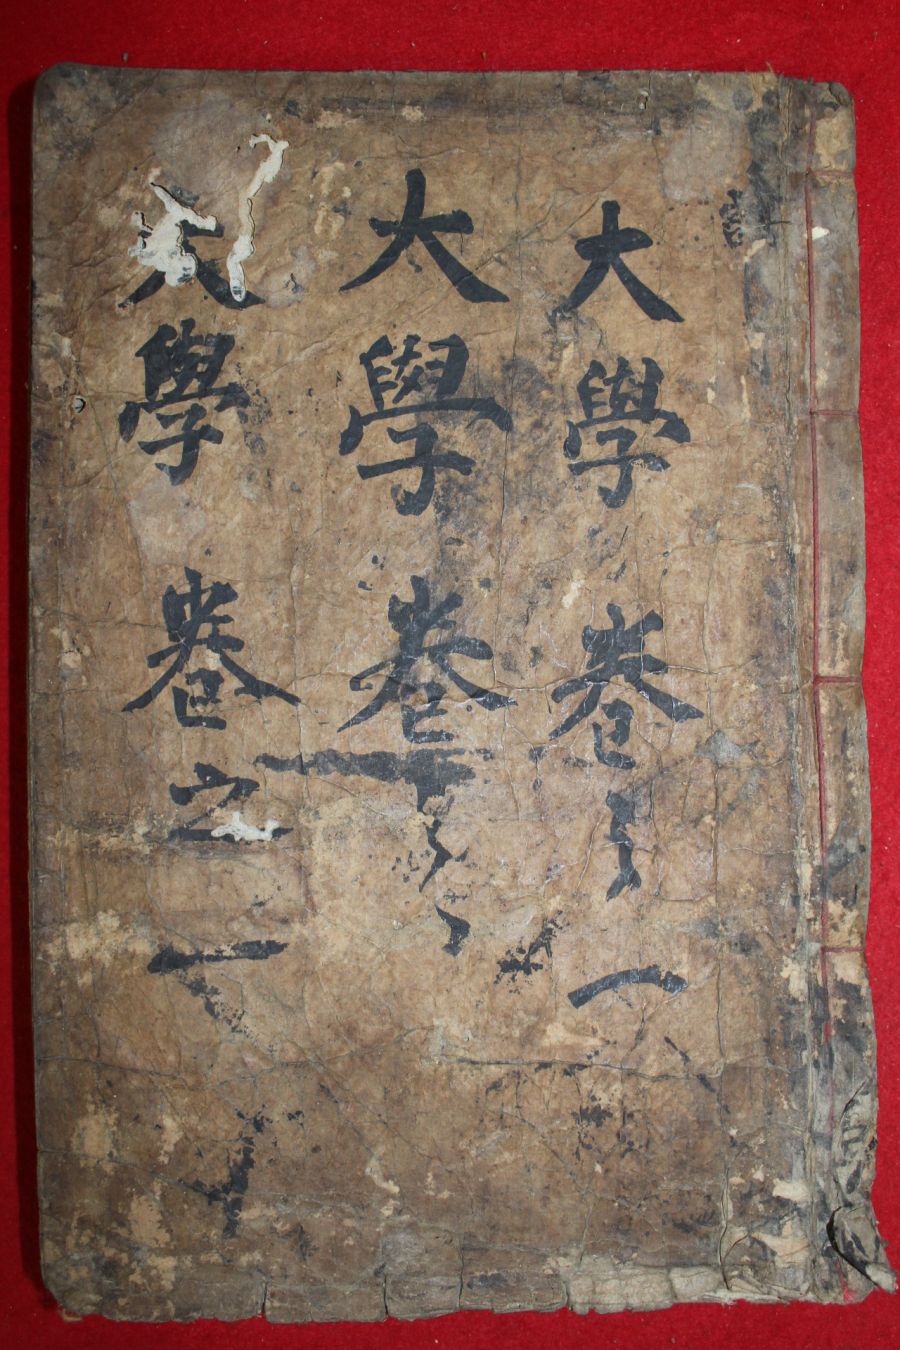 大學 卷 一
大學 卷
大學 卷之一